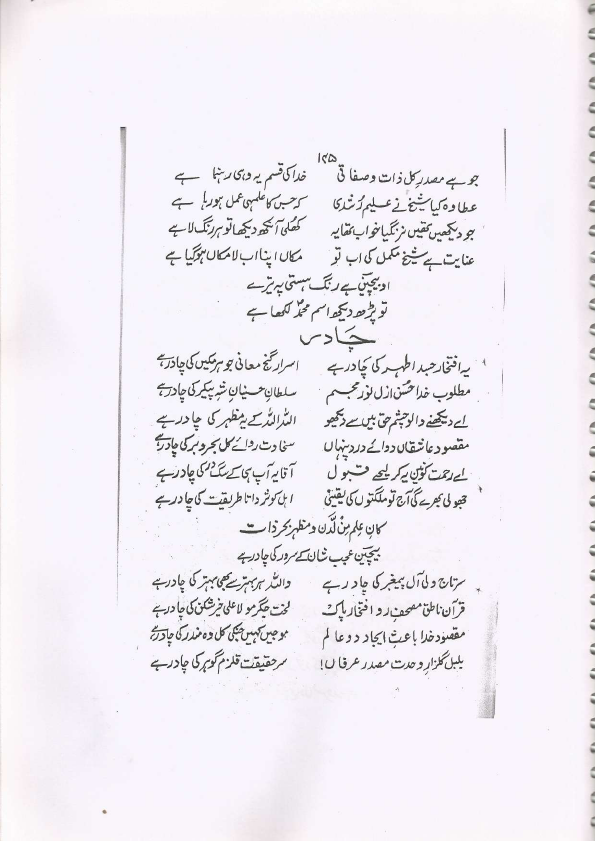 ۱۲۵
جو ہے مصدر کل ذات و صفاتی خدا کی قسم یہ وہی رہنما ہے
عطا وہ کیا شیخ نے علیم رُشدی کہ جس کا علمہی عمل ہو رہا ہے
جو دیکھیں تمھیں نرنگیا خواب تھا یہ کھلی آنکھ دیکھا تو ہر رنگ لا ہے
عنایت ہے شیخ مکمل کی اب تو مکاں اپنا اب لا مکاں ہو گیا ہے
او بیچین ہے رنگ ہستی پہ تیرے
تو پڑھ دیکھ اسم محمدؐ لکھا ہے
چادر
یہ افتخار حیدر اطہر کی چادر ہے اسرار گنج معانی جوہر مکیں کی چادر ہے
مطلوب خدا حُسن ازل نور مجسم سلطان حسیناں شہ پیکر کی چادر ہے
اے دیکھنے والو چشم حق بیں سے دیکھو اللہ اللہ کے یہ مظہر کی چادر ہے
مقصود عاشقاں دوائے درد پنہاں سخاوت روائے کل بحر و بر کی چادر ہے
اے رحمت کونین یہ کر لیجے قبول آقا یہ آپ ہی کے سگ در کی چادر ہے
جھولی بھرے گی آج تو ملگتوں کی یقینی اہل کوثر داتا طریقیت کی چادر ہے
کان علم من لّدن و مظہر بحر ذات
بیچین عجب شان کے سرور کی چادر ہے
سرتاج ولی آل پیغمبر کی چادر ہے واللہ ہر بہتر سے بھی بہتر کی چادر ہے
قرآن ناطق مصحف رو افتخار پاک لخت جگر مولا علی خیبر شکن کی چادر ہے
مقصود خدا باعث ایجاد دو عالم موجیں کہیں جسکی کل وہ مندر کی چادر ہے
بلبل گلزار وحدت مصدر عرفاں! سر حقیقت قلزم گوہر کی چادر ہے